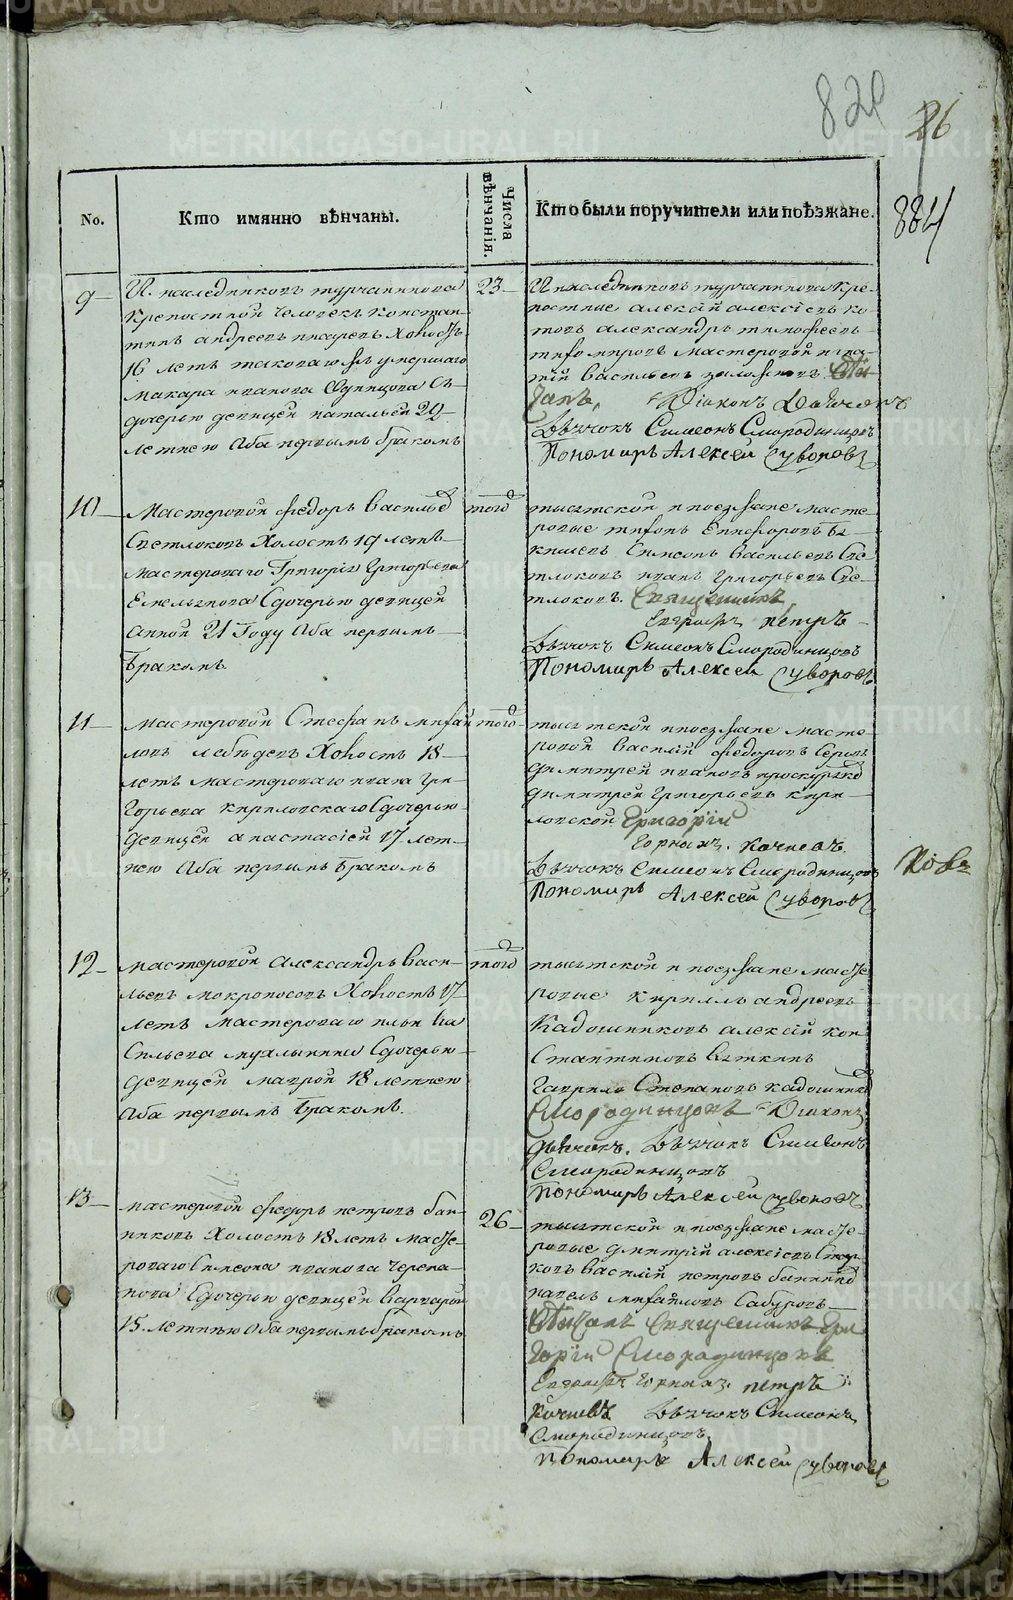 820
26
884
No.
Кто имянно вѣнчаны.
Числа вѣнчанія.
Кто были поручители или поѣзжане.
9
И. наследниковъ турчанинова
крепостной человекъ констан
тинъ андреевъ писаревъ Холостъ
16 летъ таковаго жъ умершаго
макара иванова Одинцова Съ
дочерью девицей натальей 29
летнею Оба первымъ бракомъ
23
И наследниковъ турчанинова кре
постные алексѣй алексѣевъ ко
товъ александръ тимофеевъ
тихомировъ мастеровой игна
тій васильевъ
Діаконъ
Дьячокъ Симеонъ Смородинцовъ
Пономарь Алексей Суворовъ
10
Мастеровой Федоръ Васильевъ
Светлоковъ Холостъ 19 летъ
Мастероваго Григорія Григорьева
Емельянова Сдочерью девицей
Анной 21 Году Оба первымъ
Бракомъ
того
тысятской и поезжане масте
ровые
Симеонъ Васильевъ Све
тлоковъ иванъ Григорьевъ Све
тлоковъ. Священникъ
Евграфъ петръ
Дьячокъ Симеонъ Смородинцовъ
Пономарь Алексей Суворовъ
11
Мастеровой Стефанъ михай
ловъ лебедевъ Холостъ 18
летъ мастероваго ивана гри
горьева кириловскаго Сдочерью
девицей анастасіей 17 лет
нею Оба первымъ Бракомъ
того
тысятской и поезжане масте
ровой василій федоровъ Серовъ
димитрей ивановъ проскуряковъ
димитрей григорьевъ кири
ловской Григорій
Горныхъ. Кочневъ
Дьячокъ Симеонъ Смородинцовъ
Пономарь Алексей Суворовъ
12
мастеровой александръ васи
льевъ мокроносовъ Холостъ 17
летъ мастероваго ильи ва
сильева Сдочерью
девицей маврой 18 летнею
Оба первымъ Бракомъ.
того
тысятской и поезжане масте
ровые Кирилъ андреевъ
Кадошниковъ алексѣй кон
стантиновъ вяткинъ
гаврило Степановъ кадошниковъ
Смородинцовъ Діаконъ
Дьячокъ Симеонъ
Смородинцовъ
Пономарь Алексей Суворовъ
13
мастеровой федоръ петровъ бан
никовъ Холостъ 18 летъ масте
роваго Симеона иванова черепа
нова Сдочерью девицей варварой
18. летнею Оба первымъ бракомъ
26
тысятской и поезжане масте
ровые дмитрій алексѣевъ
василій петровъ банниковъ
павелъ михайловъ Сабуровъ
Священникъ Гри
горій Смородинцовъ
Евграфъ горныхъ. петръ
Кочневъ Дьячокъ Симеонъ
Смородинцовъ.
Пономарь Алексей Суворовъ
METRIKI.GASO-URAL.RU